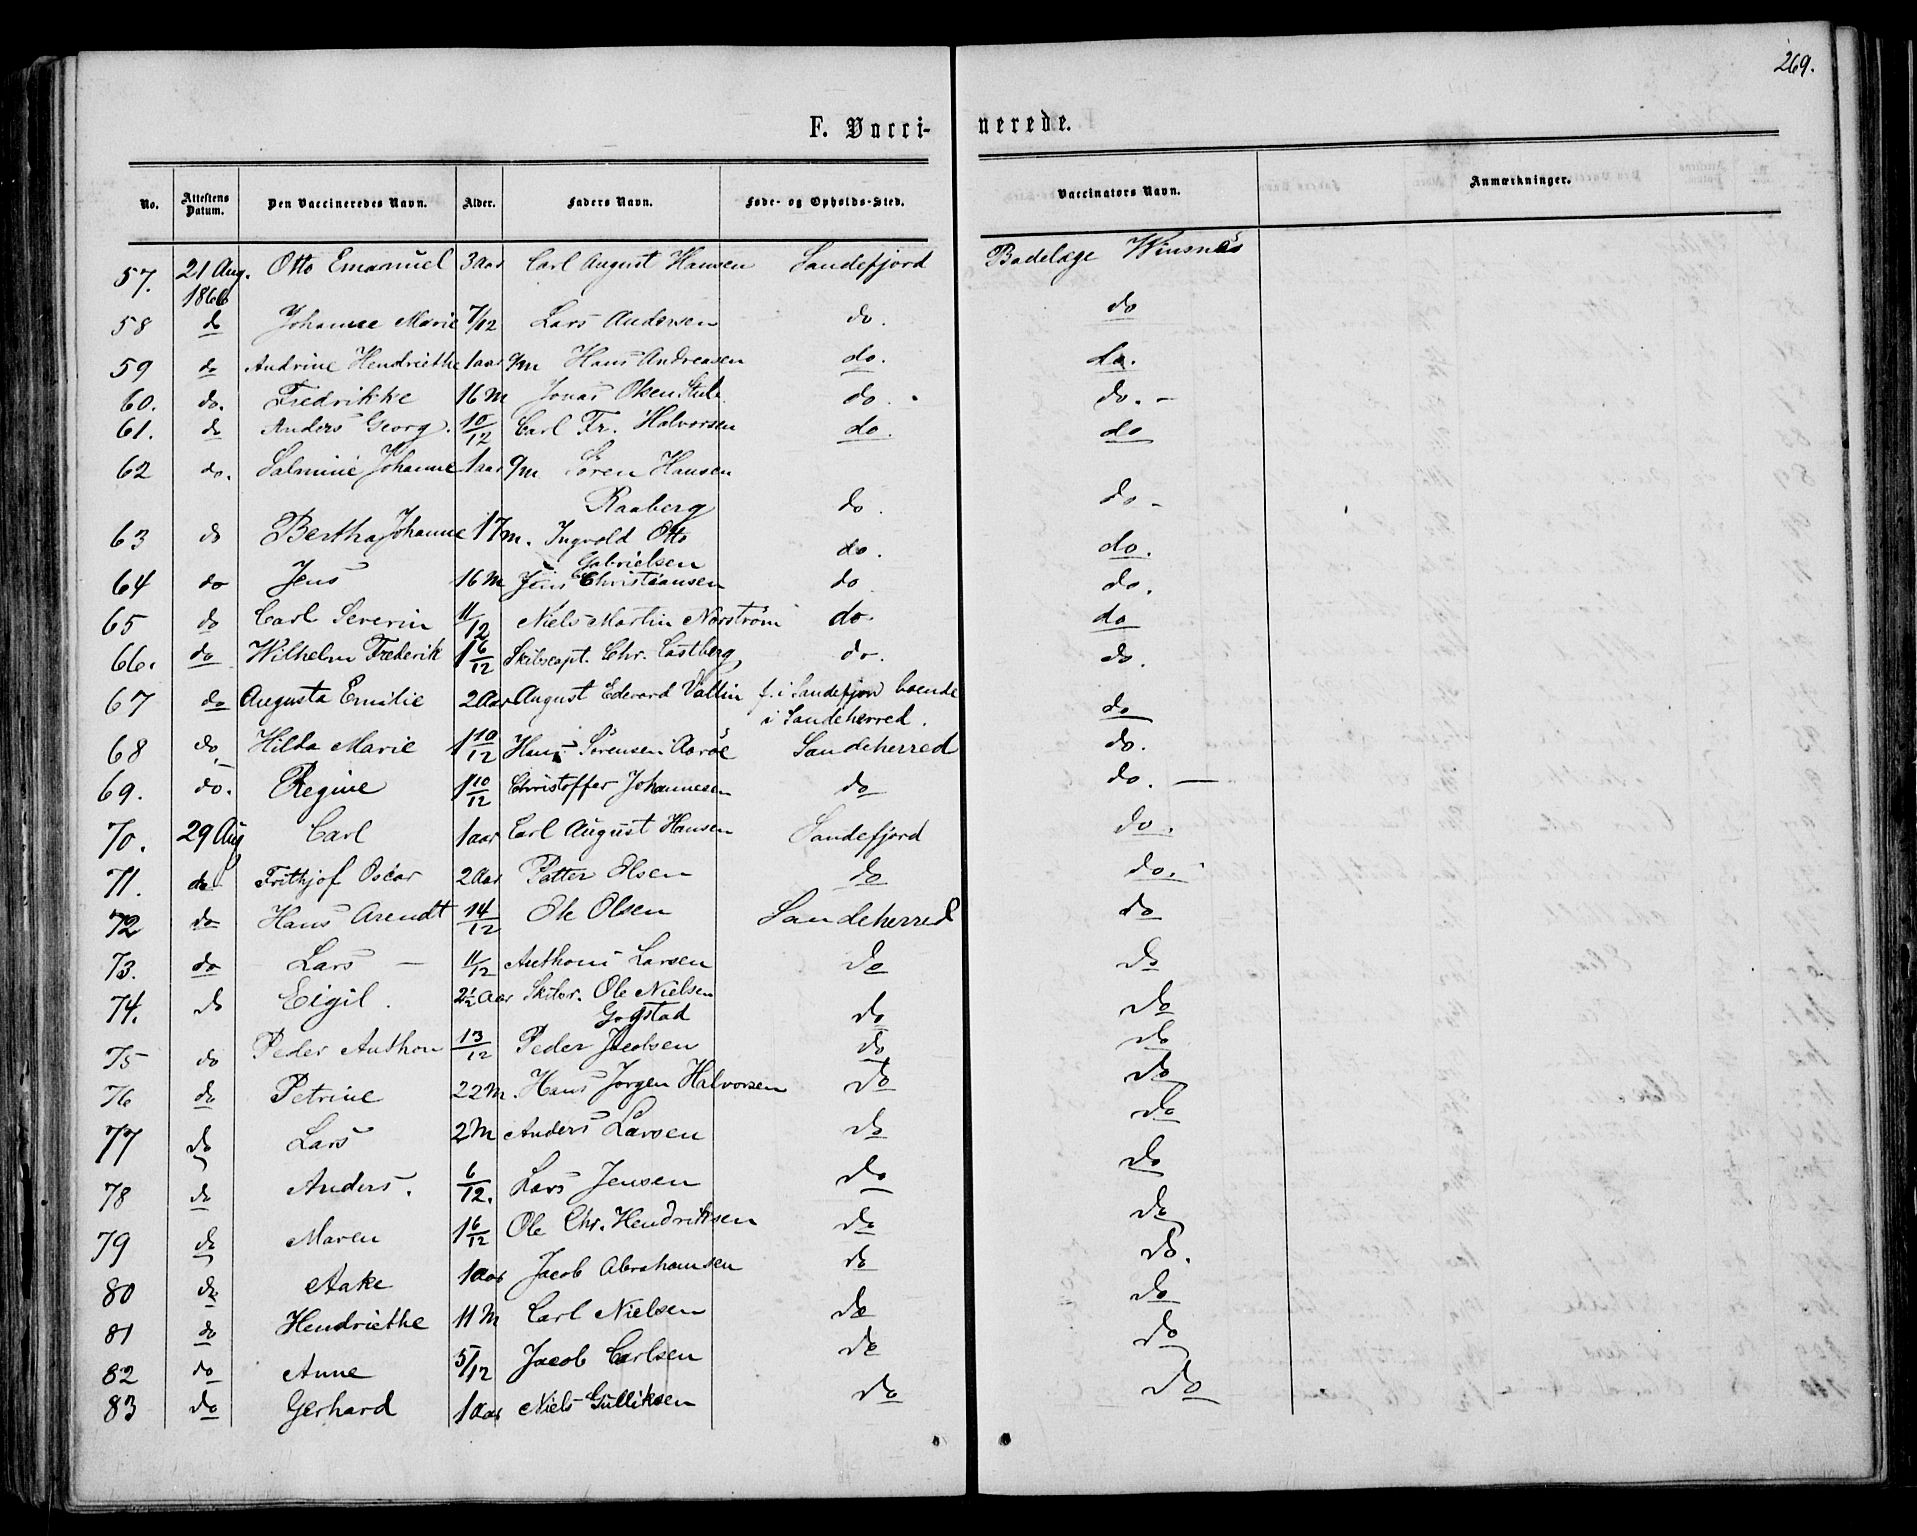 269.
F. Vacci- nerede.
No. Attestens Datum. Den Vaccineredes Navn. Alder. Faders Navn. Føde- og Opholds-Sted. Vaccinators Navn. Anmærkninger.
57. 21 Aug. 1866 Otto Emanuel 3 Aar Carl August Hansen Sandefjord Badelæge
58 do Johanne Marie 7/12 Lars Andersen do. do
59 do Andrine Hendriethe 1 aar 9/m Hans Andreasen do. do.
60. do. Fredrikke 16 M Jonas Olsen do. do. -
61. do Anders Georg. 10/12 Carl Fr. Halvorsen do. do
62 do. Salmine Johanne 1 aar 9/m Søren Hansen
Raaberg do. do -
63 do Bertha Johanne 17 m. Ingvold Otto
Gabrielsen do. do.
64 do Jens 16 M Jens Christiansen do do.
65 do Carl Severin 11/12 Niels Martin Norström do. do
66. do Wilhelm Frederik 1 6/12 Skibscapt. Chr. Castberg, do. do.
67 do Augusta Emilie 2 Aar August Edevard Vallin f. i Sandefjord boende
i Sandeherred. do
68 do, Hilda Marie 1 10/12 Hans Sørensen Aaröe Sandeherred do.
69. do. Regine 1 10/12 Christoffer Johannesen do do. -
70. 29 Aug Carl 1 aar Carl August Hansen Sandefjord do.
71. do Frithjof Oscar 2 Aar Petter Olsen do do.
72 do Hans Arendt 14/12 Ole Olsen Sandeherred do
73. do Lars - 11/12 Anthoni Larsen do do
74. do Eigil. 2 1/2 Aar Skibr. Ole Nielsen
Gogstad do do
75 do Peder Anthon 13/12 Peder Jacobsen do do
76 do Petrine 22 M. Hans Jørgen Halvorsen do do
77 do Lars 2 M Anders Larsen do do
78 do Anders. 6/12. Lars Jensen do do
79 do Maren 1 6/12 Ole Chr. Hendriksen do do
80 do Aake 1 aar Jacob Abrahamsen do do.
81 do Hendriethe 11 M Carl Nielsen do do
82 do Anne 5/12 Jacob Carlsen do do
83 do Gerhard 1 Aar Niels Gulliksen do do